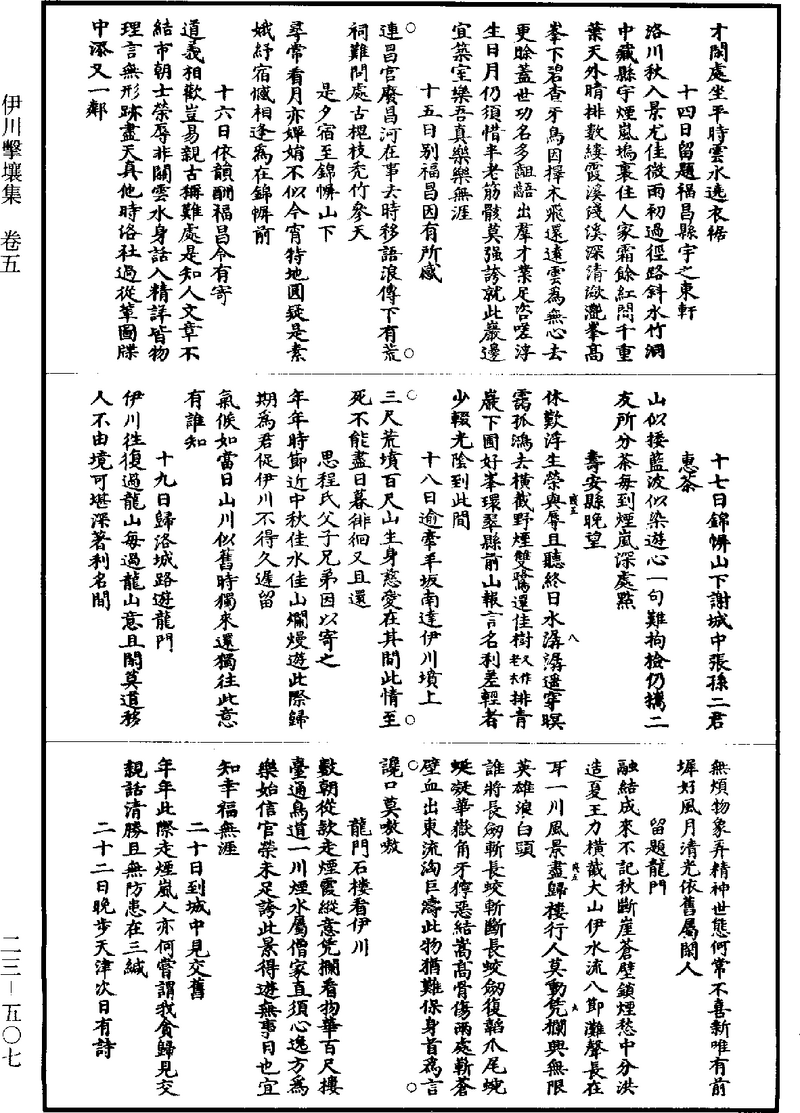 伊川擊壤集　卷五
才閑處坐平時雲水遶衣裾
十四日留題福昌縣宇之東軒
洛川秋入景尤佳微雨初過徑路斜水竹洞
中藏縣宇煙嵐塢裏住人家霜餘紅間千重
葉天外晴排數縷霞溪淺溪深清澈灔峯高
峯下碧查牙鳥因擇木飛還遠雲為無心去
更賒蓋世功名多齟齬出羣才業足咨嗟浮
生日月仍須惜半老筋骸莫强誇就此巖邊
宜築室樂吾真樂樂無涯
十五日别福昌因有所感
連昌宫廢昌河在事去時移語浪傳下有荒
祠難問處古槐枝禿竹參天
是夕宿至錦幈山下
尋常看月亦嬋娟不似今宵特地圓疑是素
娥紓宿憾相逢為在錦幈前
十六日依韻酬福昌令有寄
道義相歡豈易親古稱難處是知人文章不
結市朝士榮辱非關雲水身話入精詳皆物
理言無形跡盡天真他時洛社過從輩圖牒
中添又一鄰
十七日錦幈山下謝城中張孫二君
惠茶
山似挼藍波似染遊心一句難拘檢仍攜二
友所分茶每到煙嵐深處點
壽安縣晚望
休歎浮生榮與辱且聽終日水潺潺遥穿暝
靄孤鴻去横截野煙雙鷺還佳樹又作老木排青
巖下圃好峯環翠縣前山報言名利差輕者
少輟光陰到此間
十八日逾牽羊坂南達伊川墳上
三尺荒墳百尺山生身慈愛在其間此情至
死不能盡日暮徘徊又且還
思程氏父子兄弟因以寄之
年年時節近中秋佳水佳山爛熳遊此際歸
期為君促伊川不得久遲留
氣候如當日山川似舊時獨來還獨往此意
有誰知
十九日歸洛城路遊龍門
伊川往復過龍山每過龍山意且閑莫道移
人不由境可堪深著利名間
無煩物象弄精神世態何常不喜新唯有前
墀好風月清光依舊屬閑人
留題龍門
融結成來不記秋斷崖蒼壁鎖煙愁中分洪
造夏王力横截大山伊水流八節灘聲長在
耳一川風景盡歸樓行人莫動凭欄興無限
英雄浪白頭
誰將長劒斬長蛟斬斷長蛟劒復韜爪尾蜿
蜒凝華嶽角牙獰惡結嵩高骨傷兩處斬蒼
壁血出東流淘巨濤此物猶難保身首為言
讒口莫嗷嗷
龍門石樓看伊川
數朝從欵走煙霞縱意凭欄看物華百尺樓
臺通鳥道一川煙水屬僧家直須心逸方為
樂始信官榮未足誇此景得遊無事日也宜
知幸福無涯
二十日到城中見交舊
年年此際走煙嵐人亦何嘗謂我貪歸見交
親話清勝且無防患在三緘
二十二日晚步天津次日有詩
二三－五〇七